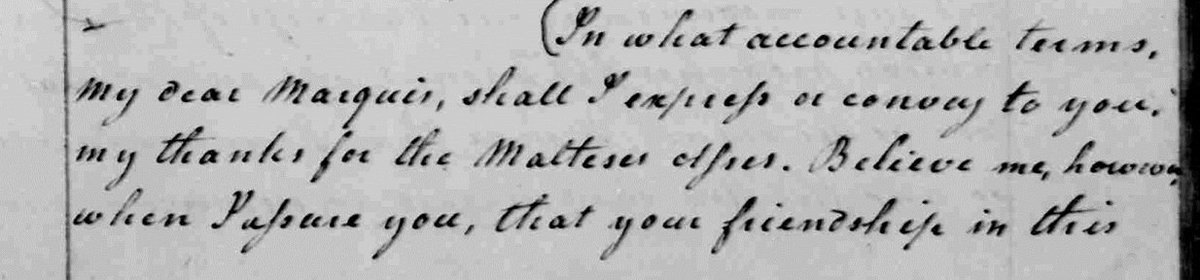 (In what accountable terms,
my dear Marquis, shall I express or convey to you,
my thanks for the Malteses Asses. Believe me, however,
when I assure you, that your friendship in this